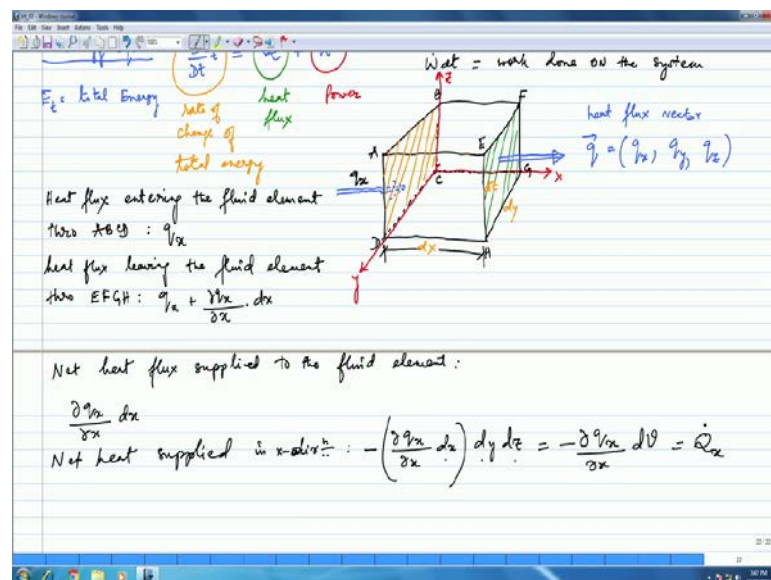 File Edit View Insert Actions Tools Help
Dt t =
Ẇ = work done on the system
E_t = total Energy
rate of
change of
total energy
heat
flux
Power
heat flux vector
q⃗ = (q_x, q_y, q_z)
z
B
F
A
E
q_x
C
G
x
dz
dy
D
dx
H
y
Heat flux entering the fluid element
thro ABCD : q_x
heat flux leaving the fluid element
thro EFGH : q_x + ∂q_x/∂x . dx
Net heat flux supplied to the fluid element :
∂q_x/∂x dx
Net heat supplied in x-dirⁿ : -(∂q_x/∂x dx) dy dz = -∂q_x/∂x dϑ = Q̇_x
22/22
22
3:47 PM